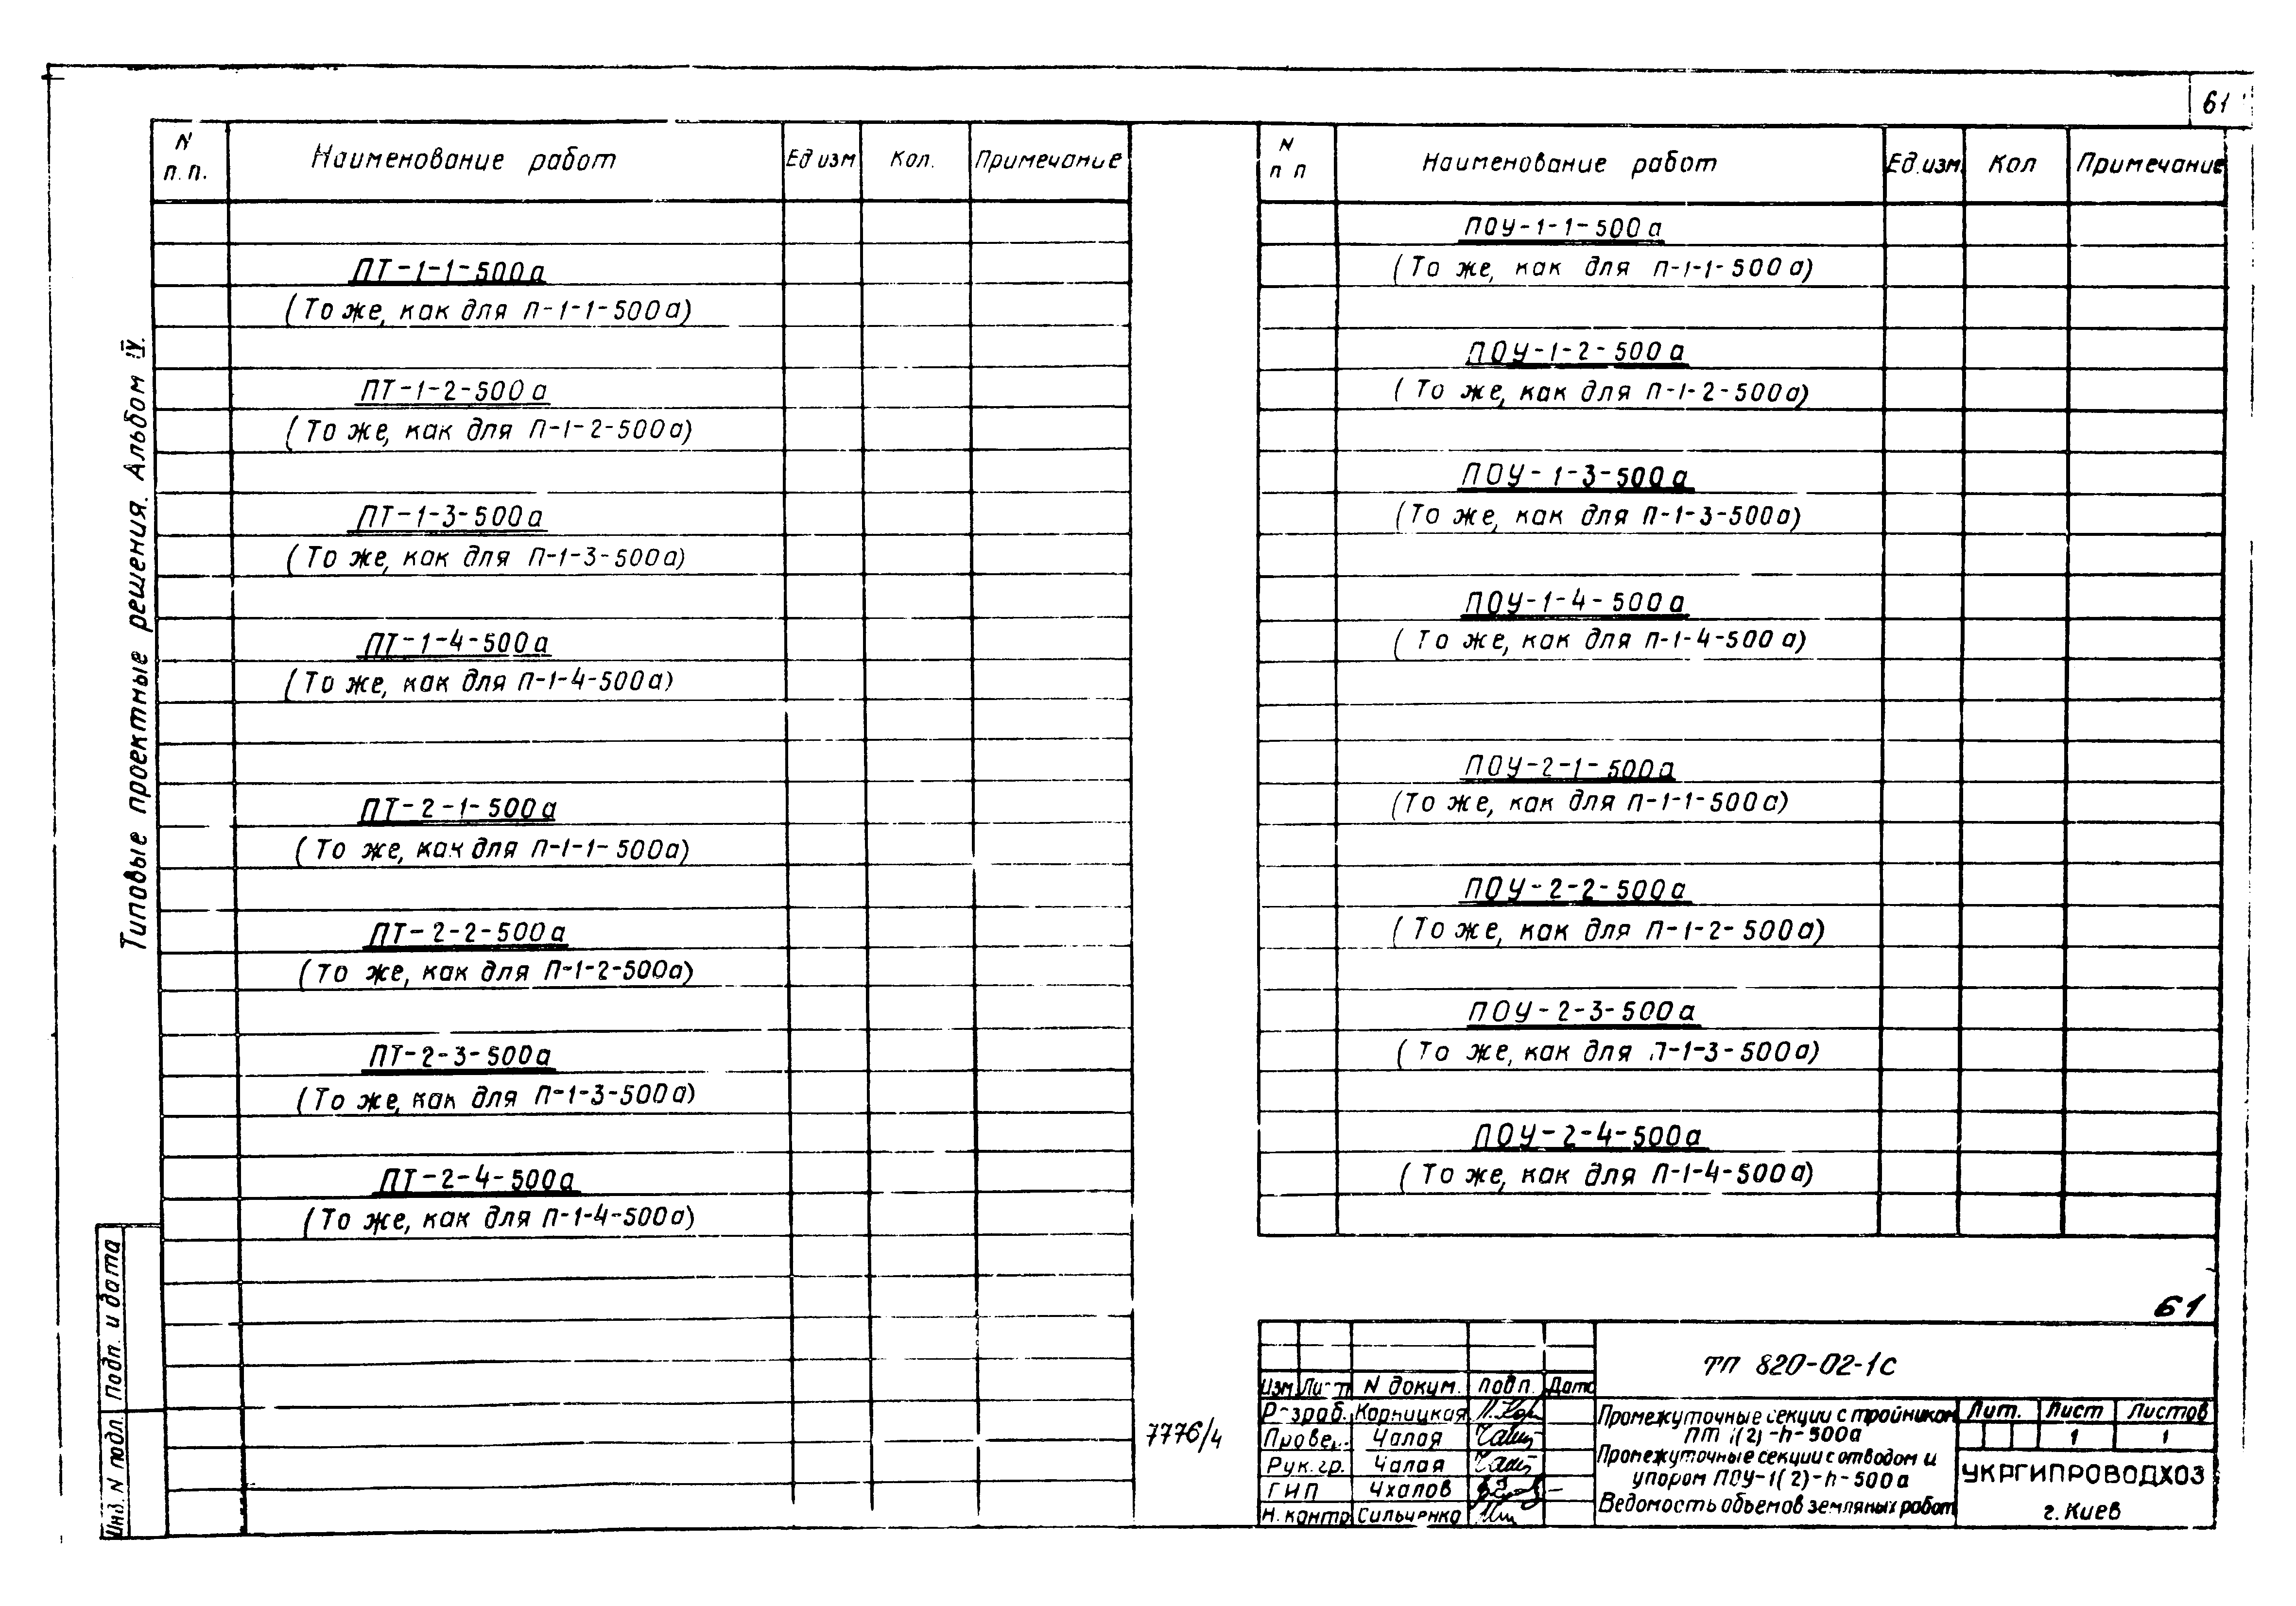 61
Типовые проектные решения. Альбом IV.
N п.п. Наименование работ Ед изм Кол. Примечание
ПТ-1-1-500а
(То же, как для П-1-1-500а)
ПТ-1-2-500а
(То же, как для П-1-2-500а)
ПТ-1-3-500а
(То же, как для П-1-3-500а)
ПТ-1-4-500а
(То же, как для П-1-4-500а)
ПТ-2-1-500а
(То же, как для П-1-1-500а)
ПТ-2-2-500а
(То же, как для П-1-2-500а)
ПТ-2-3-500а
(То же, как для П-1-3-500а)
ПТ-2-4-500а
(То же, как для П-1-4-500а)
N п п Наименование работ Ед.изм. Кол Примечание
ПОУ-1-1-500а
(То же, как для П-1-1-500а)
ПОУ-1-2-500а
(То же, как для П-1-2-500а)
ПОУ-1-3-500а
(То же, как для П-1-3-500а)
ПОУ-1-4-500а
(То же, как для П-1-4-500а)
ПОУ-2-1-500а
(То же, как для П-1-1-500а)
ПОУ-2-2-500а
(То же, как для П-1-2-500а)
ПОУ-2-3-500а
(То же, как для П-1-3-500а)
ПОУ-2-4-500а
(То же, как для П-1-4-500а)
Инв. N подл. Подп. и дата
7776/4
61
ТП 820-02-1с
Изм Лист N докум. Подп. Дата
Разраб. Корницкая
Провер. Чалая
Рук.гр. Чалая
ГИП Чхалов
Н.контр Сильченко
Промежуточные секции с тройником
ПТ 1(2)-h-500а
Промежуточные секции с отводом и
упором ПОУ-1(2)-h-500а
Ведомость объемов земляных работ
Лит. Лист Листов
1 1
УКРГИПРОВОДХОЗ
г. Киев